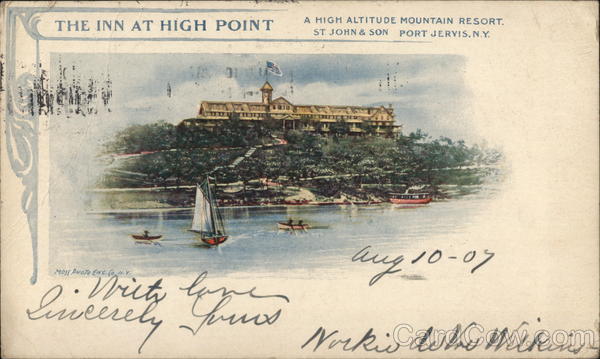 THE INN AT HIGH POINT
A HIGH ALTITUDE MOUNTAIN RESORT.
ST. JOHN & SON PORT JERVIS, N.Y.
MOSS PHOTO ENG. CO. N.Y.
Aug 10-07
With love
Sincerely Yours
Wilkins
CardCow.com